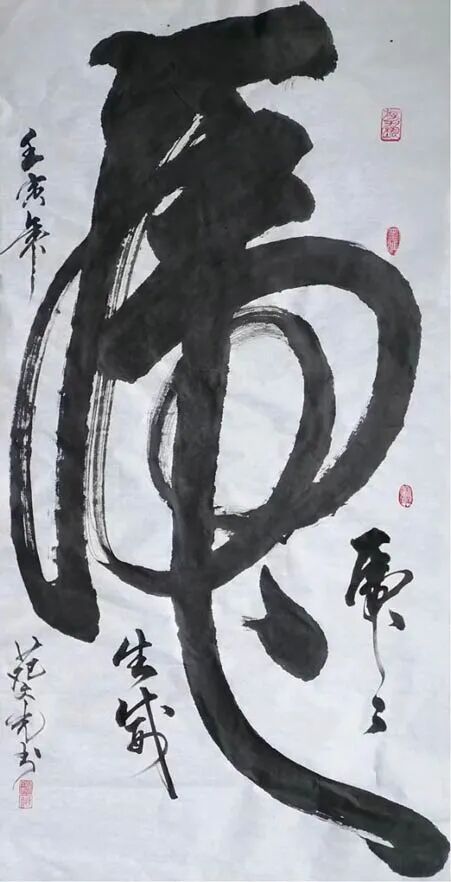 虎
虎〻
生威
壬寅年
范 书